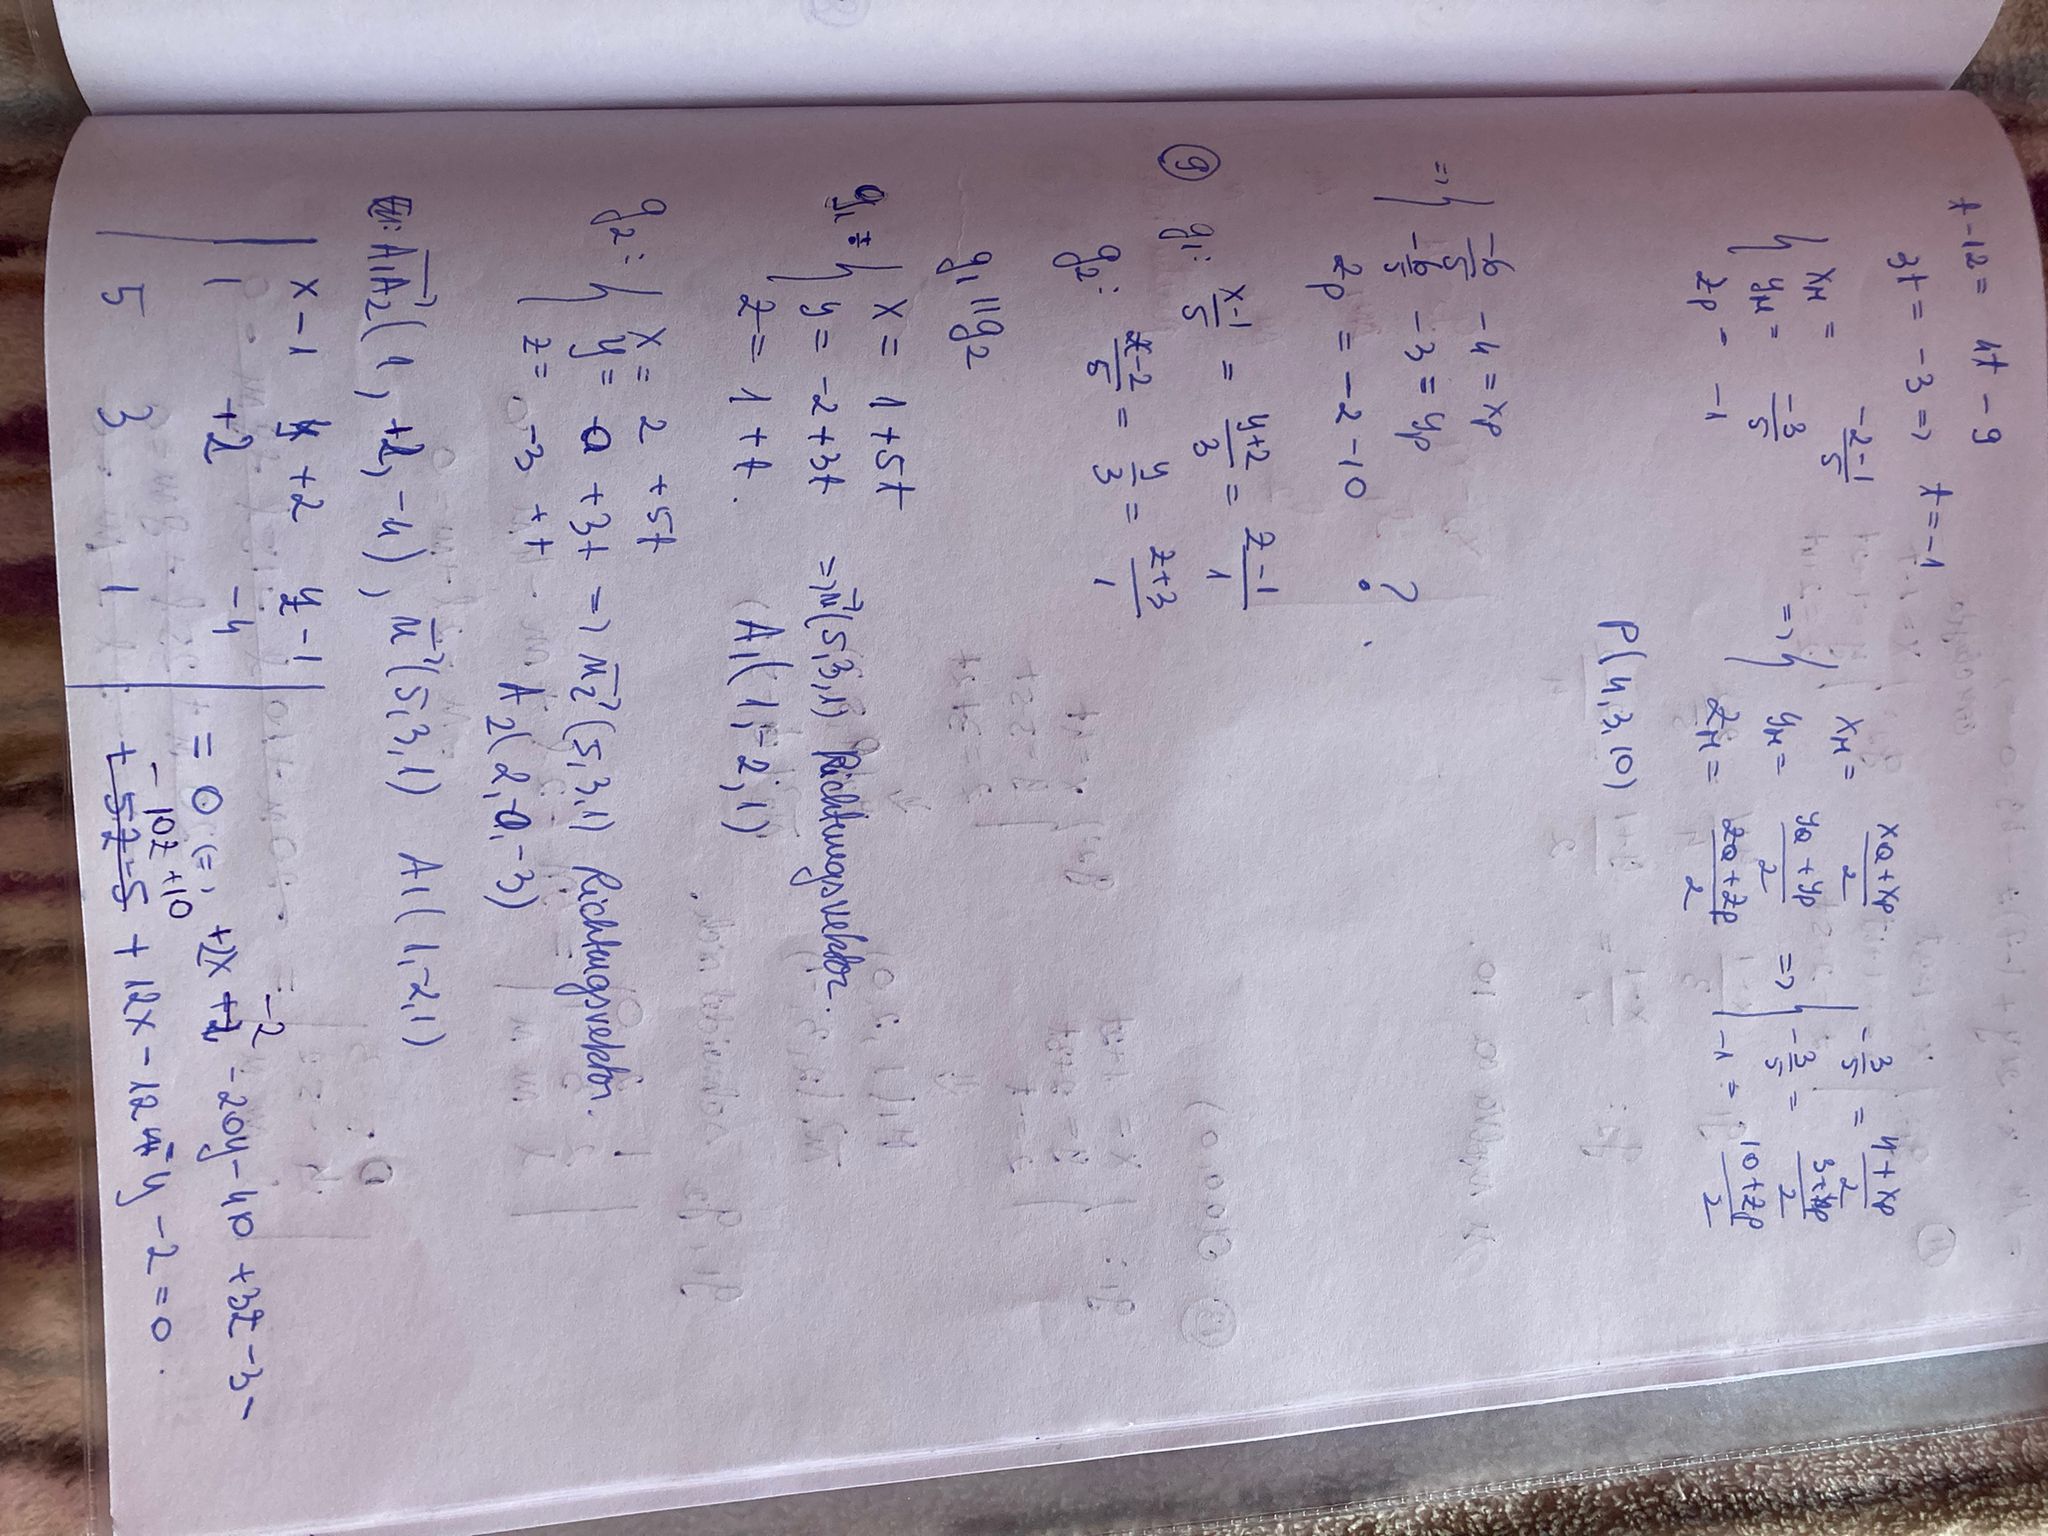 t-12 = 4t - 9
3t = -3 => t = -1
{ xM = (-2-1)/5 => { xM = (xQ+xP)/2 => { -3/5 = (4+xP)/2
yM = -3/5 yM = (yQ+yP)/2 -3/5 = (3+yP)/2
zP = -1 zM = (zQ+zP)/2 -1 = (10+zP)/2
P(4,3,10)
=> { -6/5 - 4 = xP
-6/5 - 3 = yP
zP = -2-10 ?
⑨ g1: (x-1)/5 = (y+2)/3 = (z-1)/1
g2: (x-2)/5 = y/3 = (z+3)/1
g1 || g2
g1: { x = 1+5t
y = -2+3t => u→(5,3,1) Richtungsvektor.
z = 1+t. A1(1,-2,1)
g2: { x = 2 +5t
y = 0 +3t => u2→(5,3,1) Richtungsvektor.
z = -3 +t A2(2,0,-3)
A1A2→(1, +2, -4), u→(5,3,1) A1(1,-2,1)
| x-1 y+2 z-1 |
| 1 +2 -4 | = 0 (=) +2x -2 -20y-40 +3z-3-
-10z+10
| 5 3 1 | + 5z-5 + 12x-12-y-2=0.